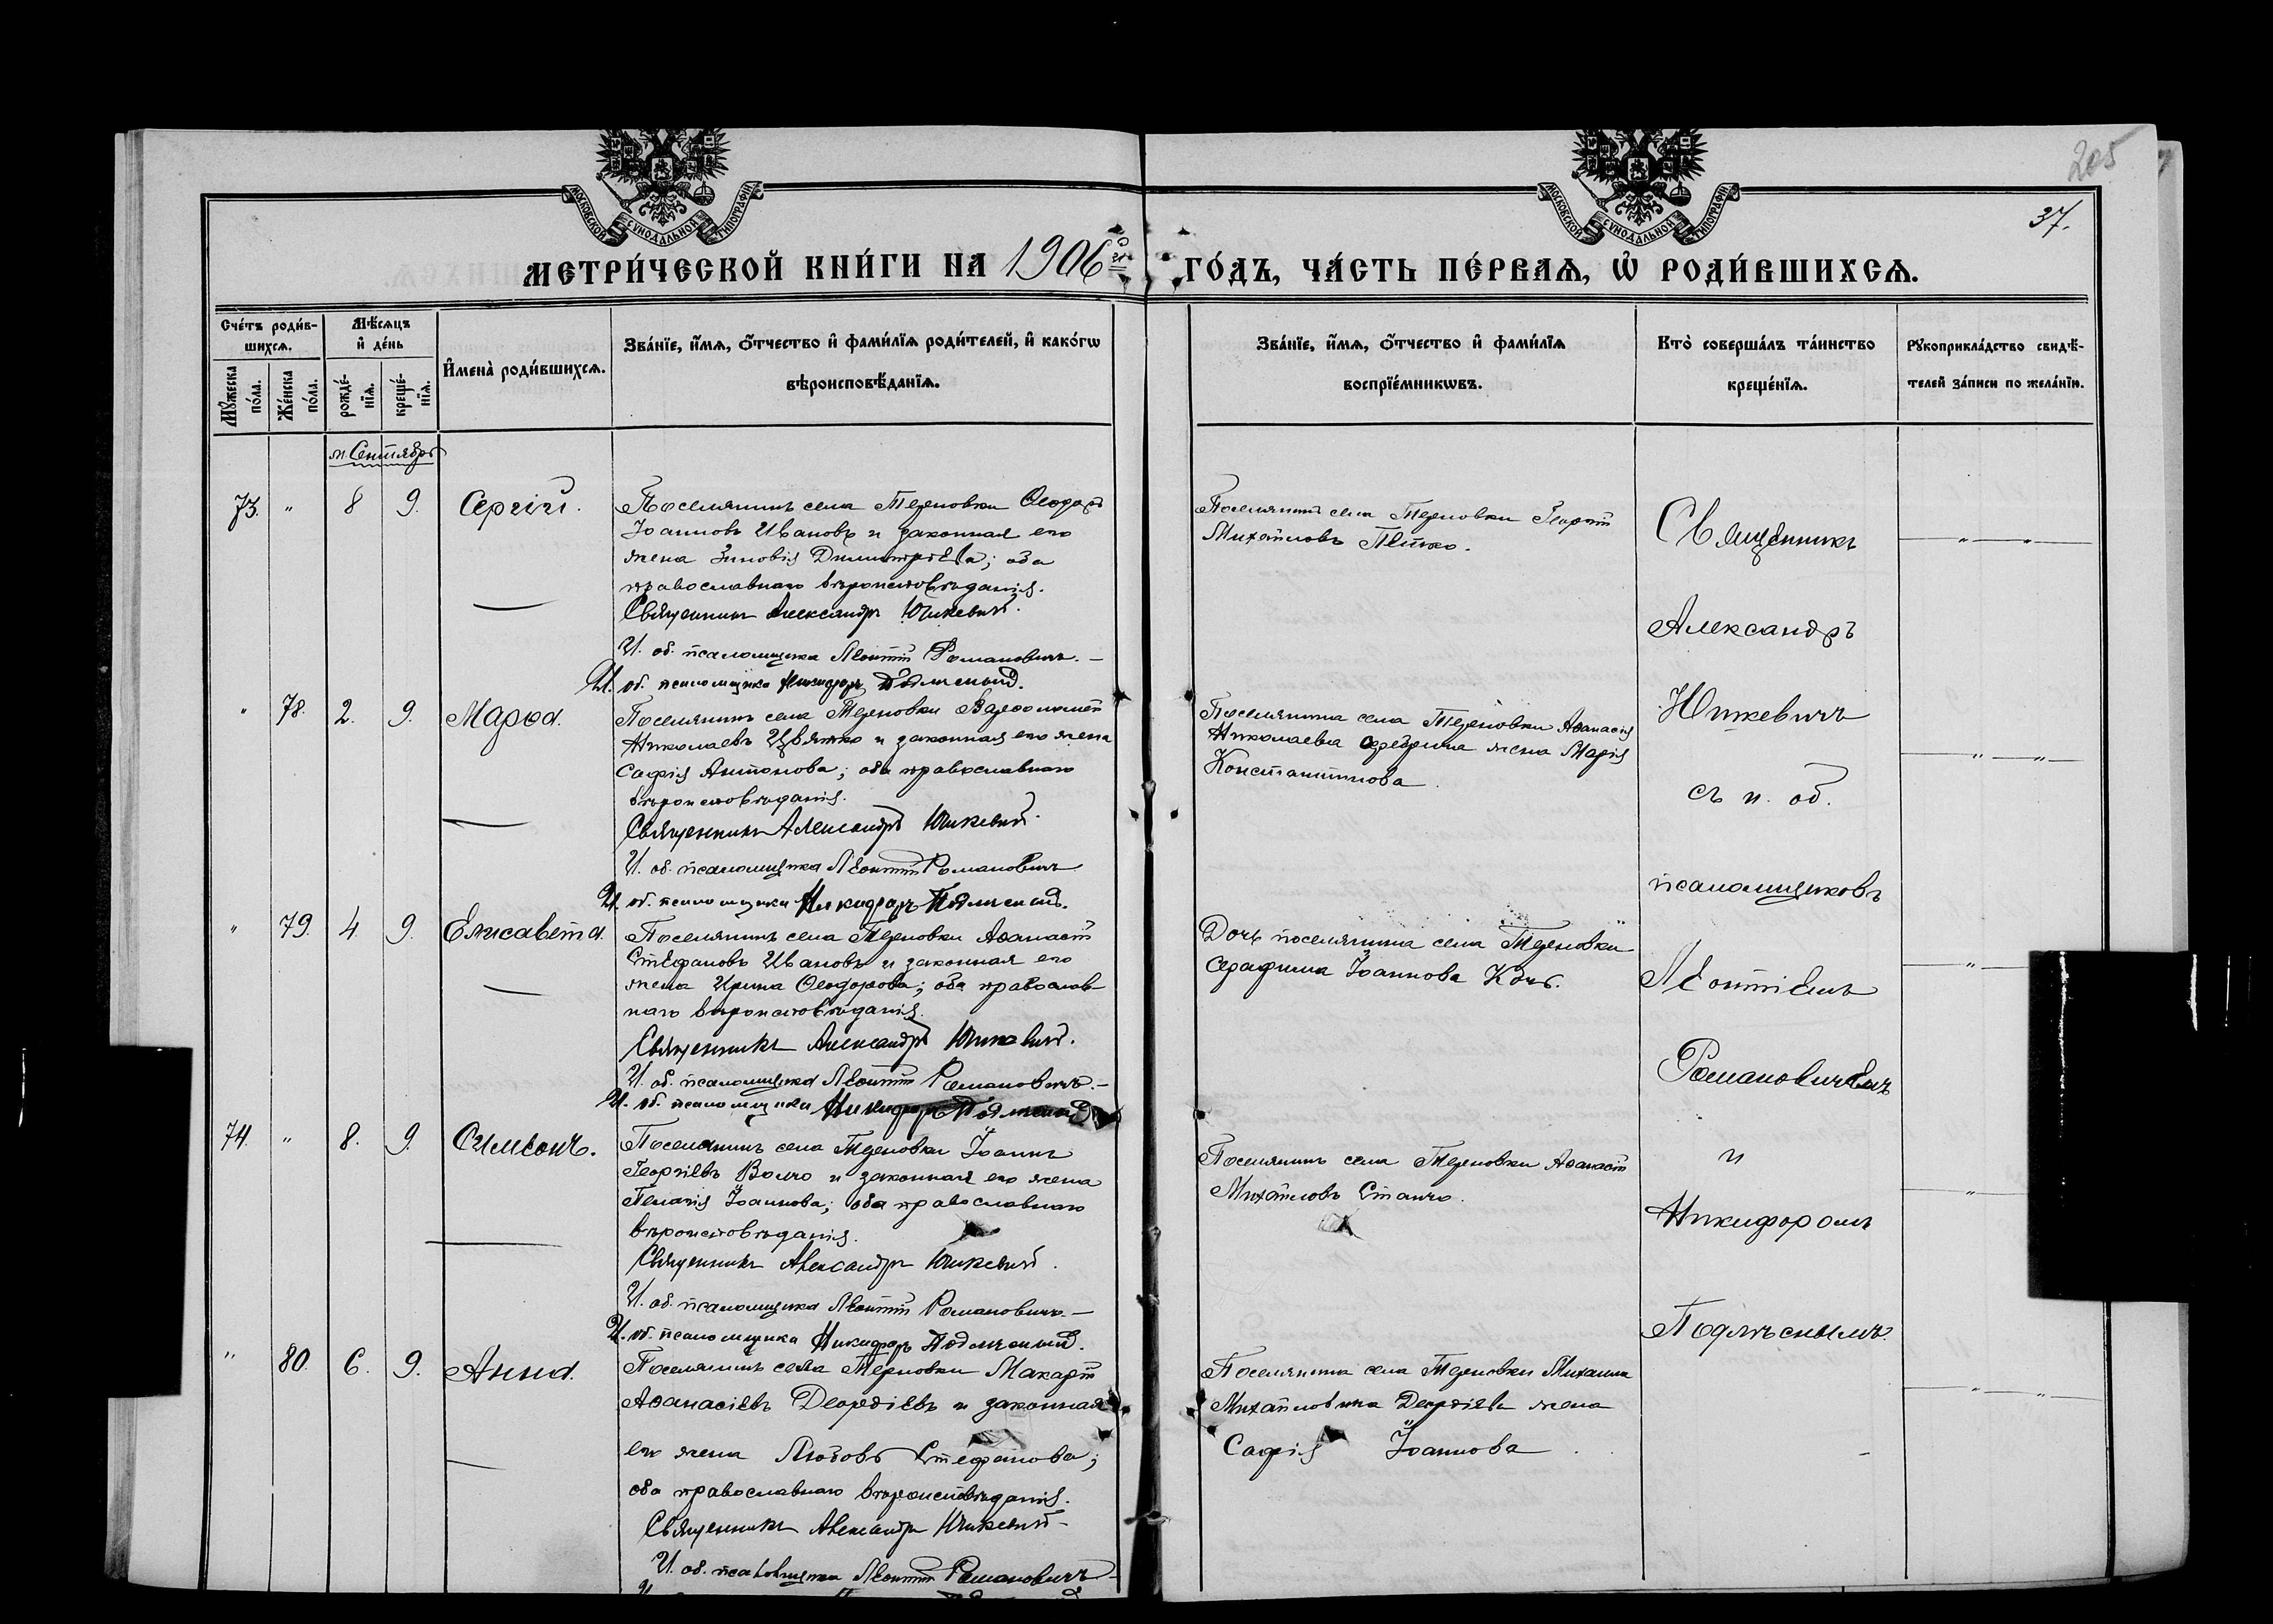 205
37.
МОСКОВСКОЙ СУНОДАЛЬНОЙ ТИПОГРАФІИ
МОСКОВСКОЙ СУНОДАЛЬНОЙ ТИПОГРАФІИ
МЕТРИ́ЧЕСКОЙ КНИ́ГИ НА 1906 й
ГО́ДЪ, ЧА́СТЬ ПЕ́РВАѦ, Ѡ҆ РОДИ́ВШИХСѦ.
Сче́тъ роди́в-
шихсѧ.
Мꙋ́жеска по́ла.
Же́нска по́ла.
Мѣ́сѧцъ
и҆ де́нь
рожде́-нїѧ.
креще́-нїѧ.
И҆мена̀ роди́вшихсѧ.
Зва́нїе, и҆́мѧ, ѻ҆́тчество и҆ фами́лїѧ роди́телей, и҆ како́гѡ
вѣроисповѣ́данїѧ.
Зва́нїе, и҆́мѧ, ѻ҆́тчество и҆ фами́лїѧ
воспрїе́мникѡвъ.
Кто̀ соверша́лъ та́инство
креще́нїѧ.
Рꙋкоприкла́дство свидѣ́-
телей за́писи по жела́нїи.
м. Сентябрь
73. " 8 9. Сергій.
Поселянинъ села Терновки Ѳеодоръ
Іоанновъ Ивановъ и законная его
жена Зиновія Димитріева; оба
православнаго вѣроисповѣданія.
Священникъ Александръ Юшкевичъ.
И. об. псаломщика Леонтій Романовичъ.—
И. об. псаломщика Никифоръ Подлѣсный.
Поселянинъ села Терновки Георгій
Михайловъ Петко.
" 78. 2. 9. Марѳа.
Поселянинъ села Терновки Варѳоломей
Николаевъ Цвятко и законная его жена
Софія Антонова; оба православнаго
вѣроисповѣданія.
Священникъ Александръ Юшкевичъ.
И. об. псаломщика Леонтій Романовичъ
И. об. псаломщика Никифоръ Подлѣсный.
Поселянина села Терновки Аѳанасія
Николаева жена Марія
Константинова.
" 79. 4. 9. Елисавета.
Поселянинъ села Терновки Аѳанасій
Стефановъ Ивановъ и законная его
жена Ирина Ѳеодорова; оба православ
наго вѣроисповѣданія.
Священникъ Александръ Юшкевичъ.
И. об. псаломщика Леонтій Романовичъ.—
И. об. псаломщика Никифоръ Подлѣсный
Дочь поселянина села Терновки
Серафима Іоаннова
74. " 8. 9. Симеонъ.
Поселянинъ села Терновки Іоаннъ
Георгіевъ Волчо и законная его жена
Пелагія Іоаннова; оба православнаго
вѣроисповѣданія.
Священникъ Александръ Юшкевичъ.
И. об. псаломщика Леонтій Романовичъ.—
И. об. псаломщика Никифоръ Подлѣсный.
Поселянинъ села Терновки Аѳанасій
Михайловъ Станчо.
" 80. 6. 9. Анна.
Поселянинъ села Терновки Макарій
Аѳанасіевъ Деордіевъ и законная
его жена Любовь Стефанова;
оба православнаго вѣроисповѣданія.
Священникъ Александръ Юшкевичъ—
И. об. псаломщика Леонтій Романовичъ—
Поселянина села Терновки Михаила
Михайловича Деордіева жена
Софія Іоаннова.
Священникъ
Александръ
Юшкевичъ
съ и. об.
псаломщиковъ
Леонтіемъ
Романовичемъ
и
Никифоромъ
Подлѣснымъ.